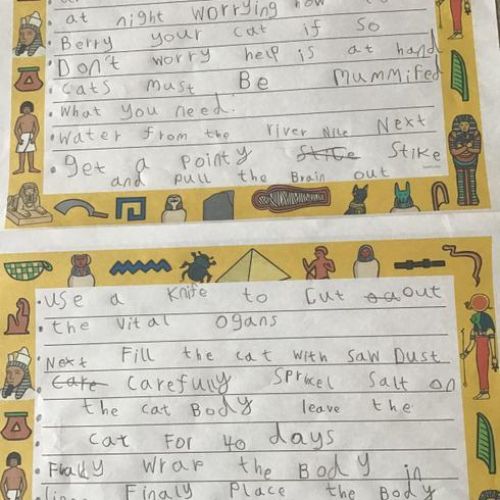 at night worrying how to
Berry your cat if so
Don't worry help is at hand
cats must Be mummifed
What you need:
water from the river Nile Next
get a pointy Stike
and pull the Brain out
use a Knife to Cut out
the vital ogans
Next Fill the cat with saw Dust
Care Carefully Sprikel Salt on
the cat Body leave the
cat For 40 days
wrap the Body in
Finaly Place the Body